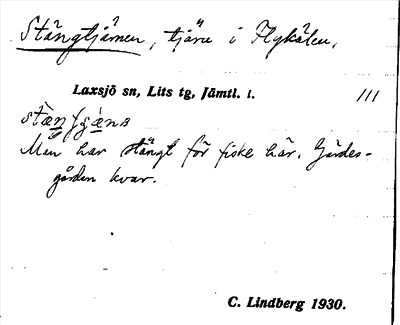 Stängtjärnen, tjärn i Flykälen.
Laxsjö sn, Lits tg, Jämtl. l. 111
Men har stängt för fiske här. Gärdes-
gården kvar.
C. Lindberg 1930.